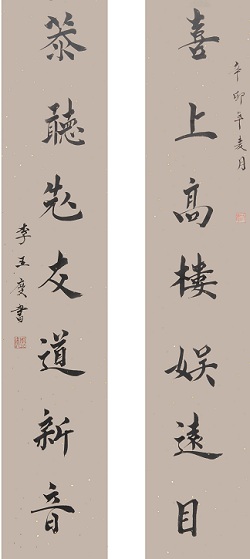 辛卯年麦月
喜上高樓娛遠目
恭聽老友道新音
李玉書